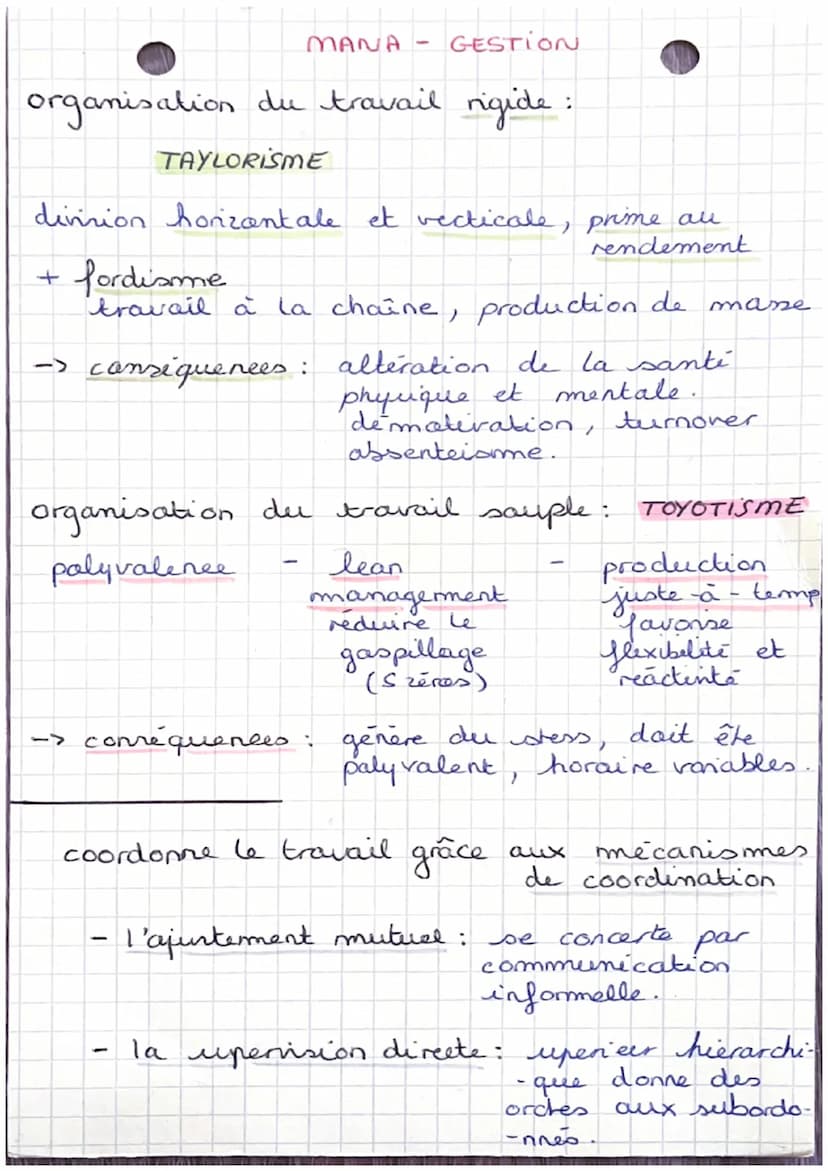 MANA - GESTION
organisation du travail rigide :
TAYLORISME
division horizontale et verticale, prime au
rendement
+ fordisme
travail à la chaîne, production de masse
-> conséquences : altération de la santé
physique et mentale.
démotivation, turnover
absenteisme.
organisation du travail souple : TOYOTISME
polyvalence - lean - production
management juste-à-temp
réduire le favorise
gaspillage flexibilité et
(5 zéros) réactivité
-> conséquences : génère du stess, doit ête
polyvalent, horaire variables.
coordonne le travail grâce aux mécanismes
de coordination
- l'ajustement mutuel : se concerte par
communication
informelle.
- la supervision directe : uperieur hiérarchi-
-que donne des
ordres aux subordo-
-nnés.